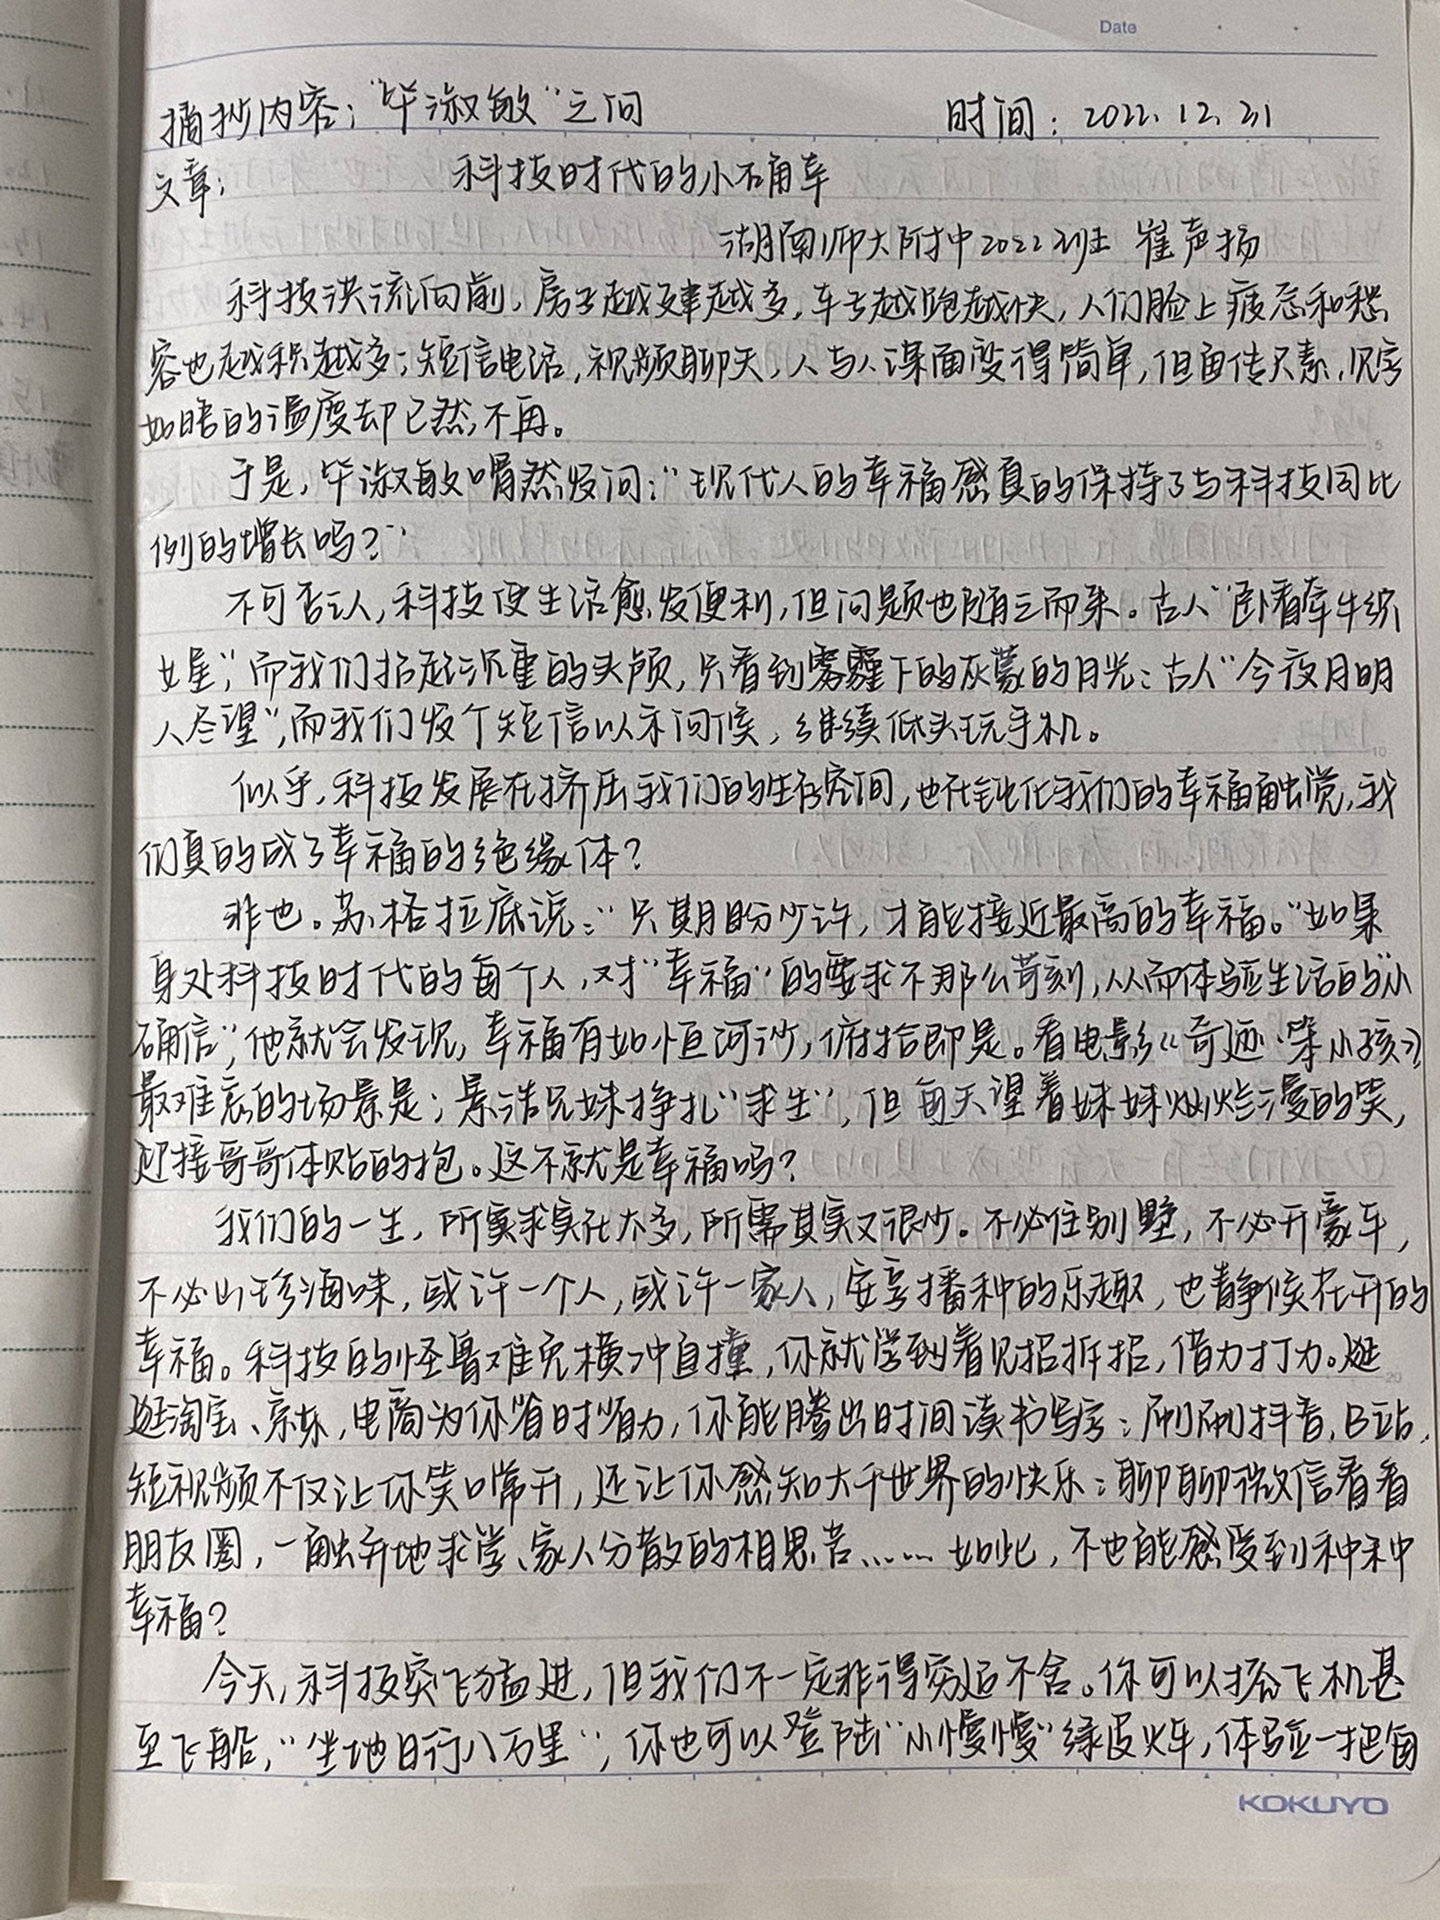 Date
摘抄内容："毕淑敏"之问 时间：2022.12.31
文章： 科技时代的小石角幸
湖南师大附中2022班 崔声扬
科技洪流向前，房子越建越多，车子越跑越快，人们脸上疲态和愁
容也越积越多；短信电话，视频聊天，人与人谋面变得简单，但鱼传尺素，见字
如晤的温度却已然不再。
于是，毕淑敏喟然发问："现代人的幸福感真的保持了与科技同比
例的增长吗？"
不可否认，科技使生活愈发便利，但问题也随之而来。古人"卧看牵牛织
女星"，而我们抬起沉重的头颅，只看到雾霾下的灰蒙的月光；古人"今夜月明
人尽望"，而我们发个短信以示问候，继续低头玩手机。
似乎，科技发展在挤压我们的生存空间，也在钝化我们的幸福触觉，我
们真的成了幸福的绝缘体？
非也。苏格拉底说："只期盼少许，才能接近最高的幸福。"如果
身处科技时代的每个人，对"幸福"的要求不那么苛刻，从而体验生活的"小
确信"，他就会发现，幸福有如恒河沙，俯拾即是。看电影《奇迹·笨小孩》
最难忘的场景是：景浩兄妹挣扎"求生"，但每天望着妹妹灿烂漫的笑，
迎接哥哥体贴的抱。这不就是幸福吗？
我们的一生，所需求实在太多，所需其实又很少。不必住别墅，不必开豪车，
不必山珍海味，或许一个人，或许一家人，安享播种的乐趣，也静候花开的
幸福。科技的怪兽难免横冲直撞，你就学到着见招拆招，借力打力。逛
逛淘宝、京东，电商为你省时省力，你能腾出时间读书写字；刷刷抖音，B站，
短视频不仅让你笑口常开，还让你感知大千世界的快乐；聊聊微信看看
朋友圈，一触异地求学、家人分散的相思苦……如此，不也能感受到种种
幸福？
今天，科技突飞猛进，但我们不一定非得穷追不舍。你可以搭飞机甚
至飞船，"坐地日行八万里"，你也可以登陆"小慢慢"绿皮火车，体验一把
KOKUYO